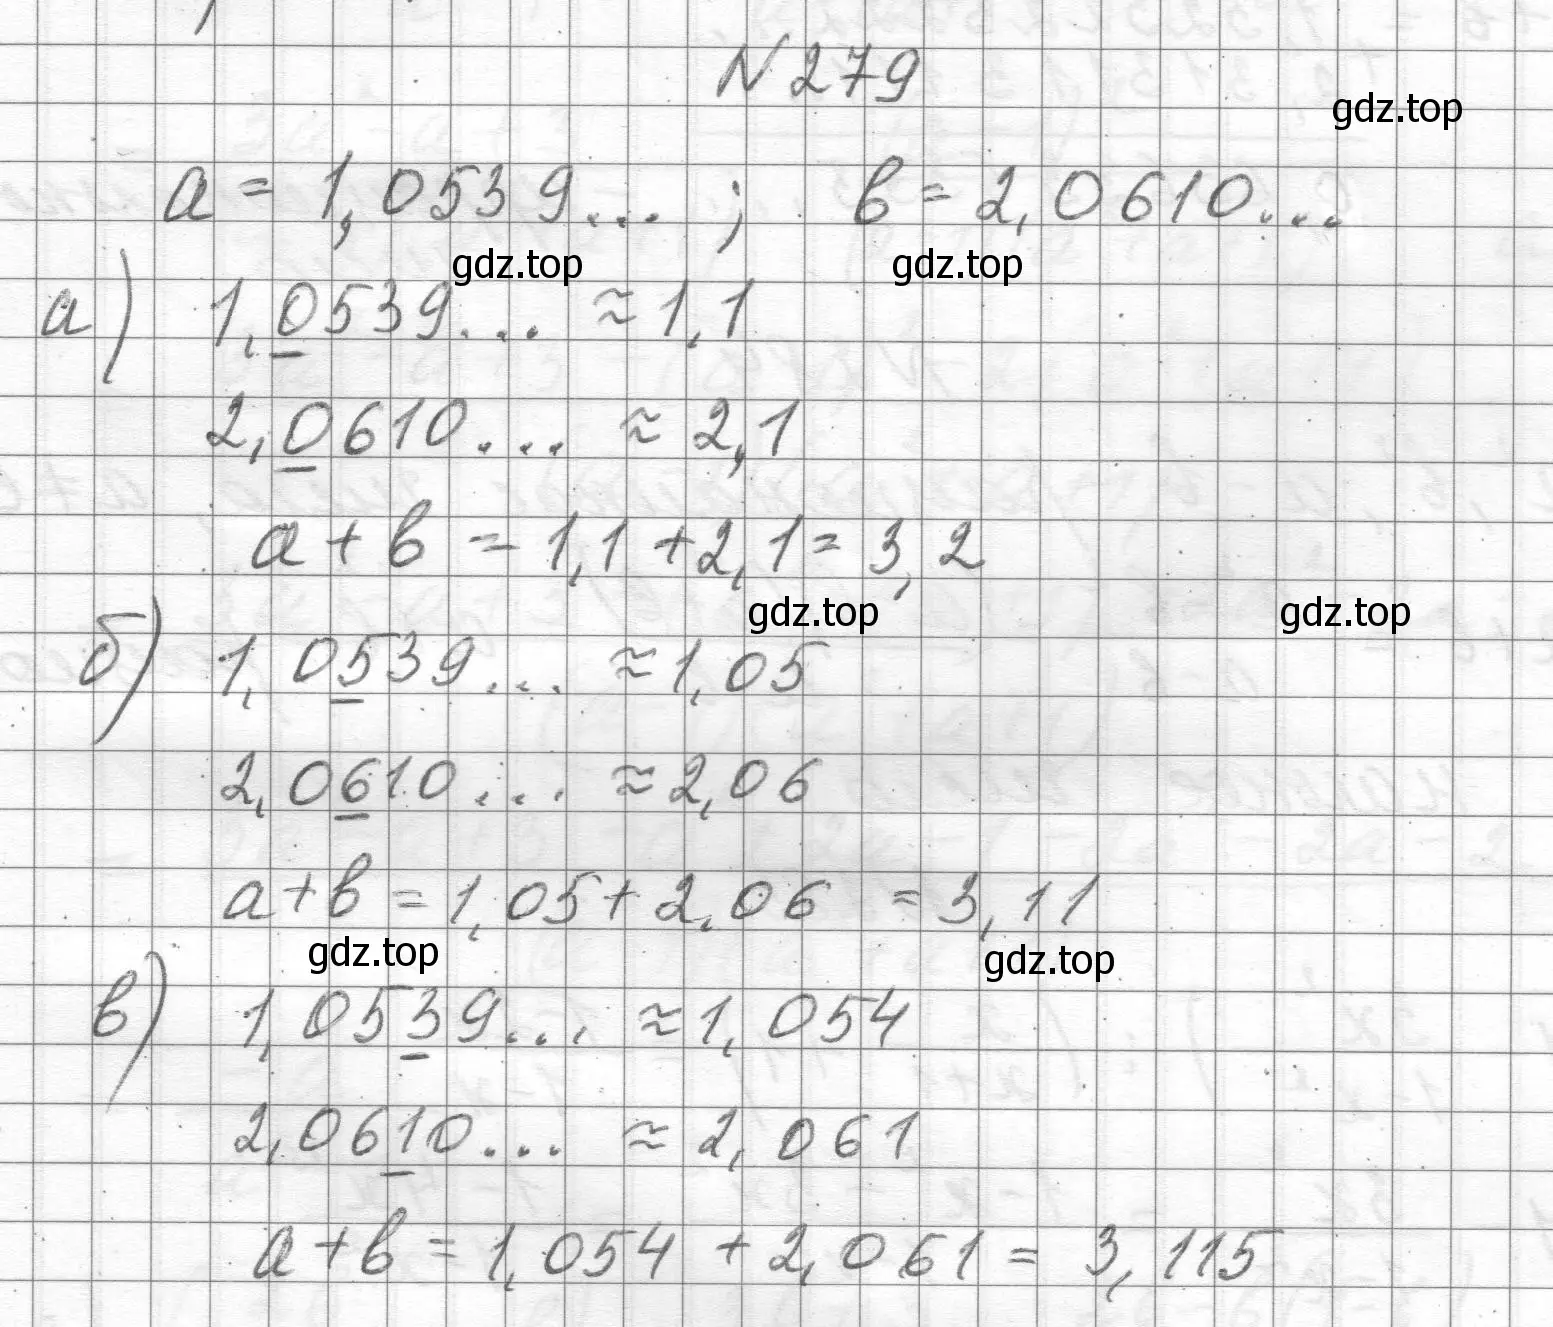 N 279
gdz.top
a = 1,0539... ; в = 2,0610...
gdz.top gdz.top
а) 1,0539... ≈ 1,1
2,0610... ≈ 2,1
a + в = 1,1 + 2,1 = 3,2
gdz.top gdz.top
б) 1,0539... ≈ 1,05
2,0610... ≈ 2,06
a + в = 1,05 + 2,06 = 3,11
gdz.top gdz.top
в) 1,0539... ≈ 1,054
2,0610... ≈ 2,061
a + в = 1,054 + 2,061 = 3,115